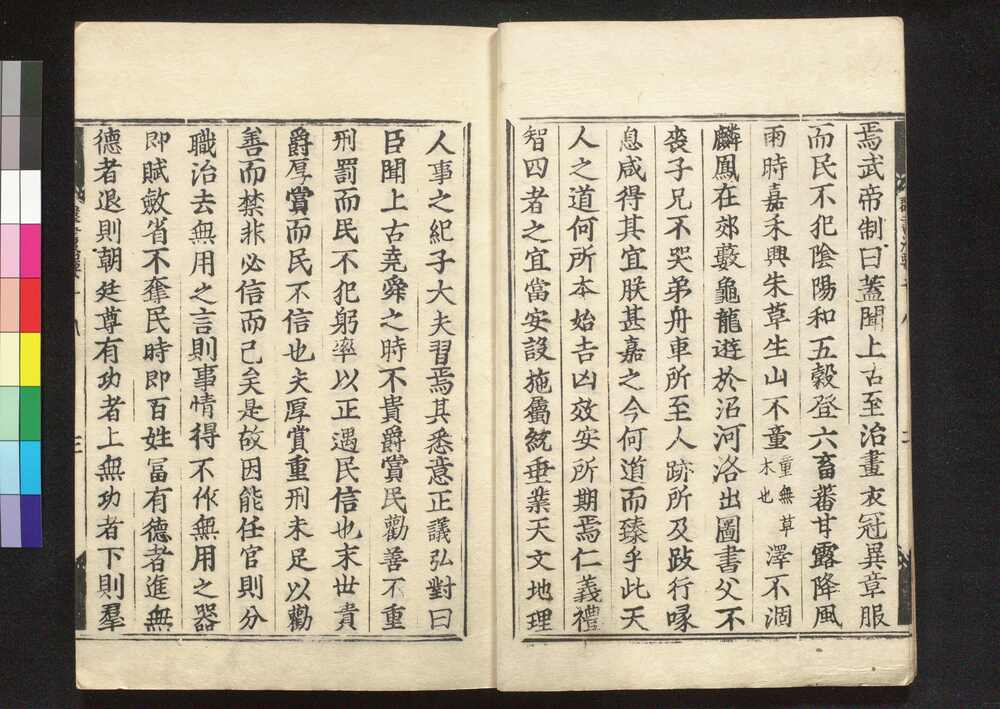 焉武帝制曰蓋聞上古至治畫衣冠異章服
而民不犯陰陽和五穀登六畜蕃甘露降風
雨時嘉禾興朱草生山不童童無草木也澤不涸
麟鳳在郊藪龜龍遊於沼河洛出圖書父不
喪子兄不哭弟舟車所至人跡所及跂行喙
息咸得其宜朕甚嘉之今何道而臻乎此天
人之道何所本始吉凶效安所期焉仁義禮
智四者之宜當安設施屬統垂業天文地理
人事之紀子大夫習焉其悉意正議弘對曰
臣聞上古堯舜之時不貴爵賞民勸善不重
刑罰而民不犯躬率以正遇民信也末世貴
爵厚賞而民不信也夫厚賞重刑未足以勸
善而禁非必信而已矣是故因能任官則分
職治去無用之言則事情得不作無用之器
即賦斂省不奪民時即百姓冨有德者進無
德者退則朝廷尊有功者上無功者下則羣